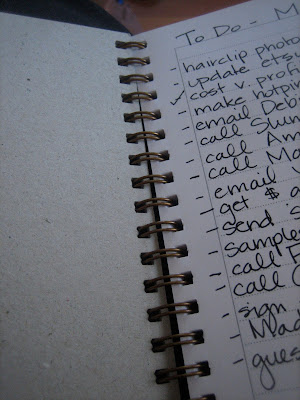 To Do - M
- hairclip photo
- update etsy
✓ cost v. profi
- make
- email Deb
- call
- call Am
- call Ma
- email
- get $ a
- send S
- sample
- call F
- call
- sign
- Mad
- gues